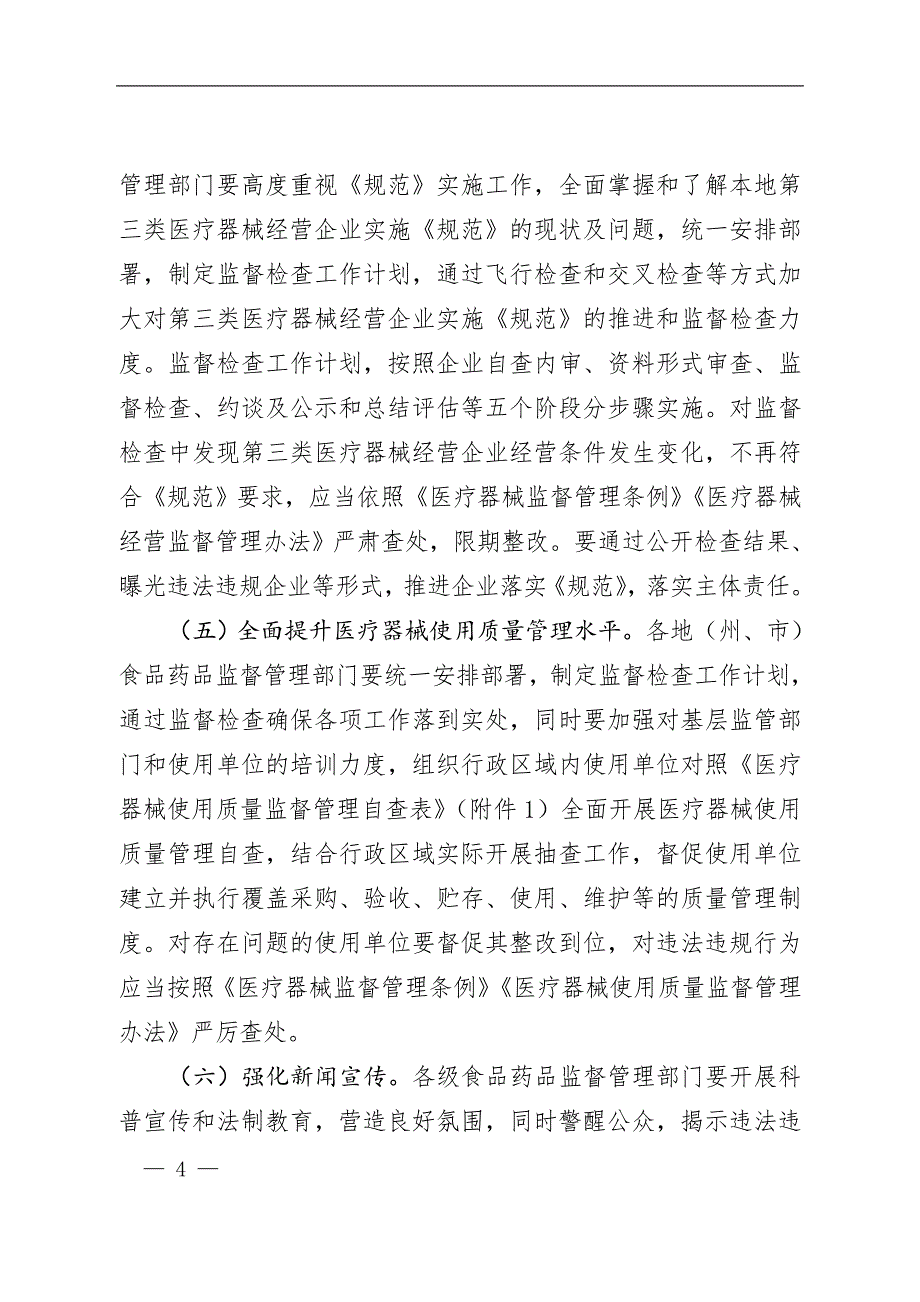 管理部门要高度重视《规范》实施工作，全面掌握和了解本地第
三类医疗器械经营企业实施《规范》的现状及问题，统一安排部
署，制定监督检查工作计划，通过飞行检查和交叉检查等方式加
大对第三类医疗器械经营企业实施《规范》的推进和监督检查力
度。监督检查工作计划，按照企业自查内审、资料形式审查、监
督检查、约谈及公示和总结评估等五个阶段分步骤实施。对监督
检查中发现第三类医疗器械经营企业经营条件发生变化，不再符
合《规范》要求，应当依照《医疗器械监督管理条例》《医疗器械
经营监督管理办法》严肃查处，限期整改。要通过公开检查结果、
曝光违法违规企业等形式，推进企业落实《规范》，落实主体责任。
（五）全面提升医疗器械使用质量管理水平。各地（州、市）
食品药品监督管理部门要统一安排部署，制定监督检查工作计划，
通过监督检查确保各项工作落到实处，同时要加强对基层监管部
门和使用单位的培训力度，组织行政区域内使用单位对照《医疗
器械使用质量监督管理自查表》（附件 1）全面开展医疗器械使用
质量管理自查，结合行政区域实际开展抽查工作，督促使用单位
建立并执行覆盖采购、验收、贮存、使用、维护等的质量管理制
度。对存在问题的使用单位要督促其整改到位，对违法违规行为
应当按照《医疗器械监督管理条例》《医疗器械使用质量监督管理
办法》严厉查处。
（六）强化新闻宣传。各级食品药品监督管理部门要开展科
普宣传和法制教育，营造良好氛围，同时警醒公众，揭示违法违
— 4 —